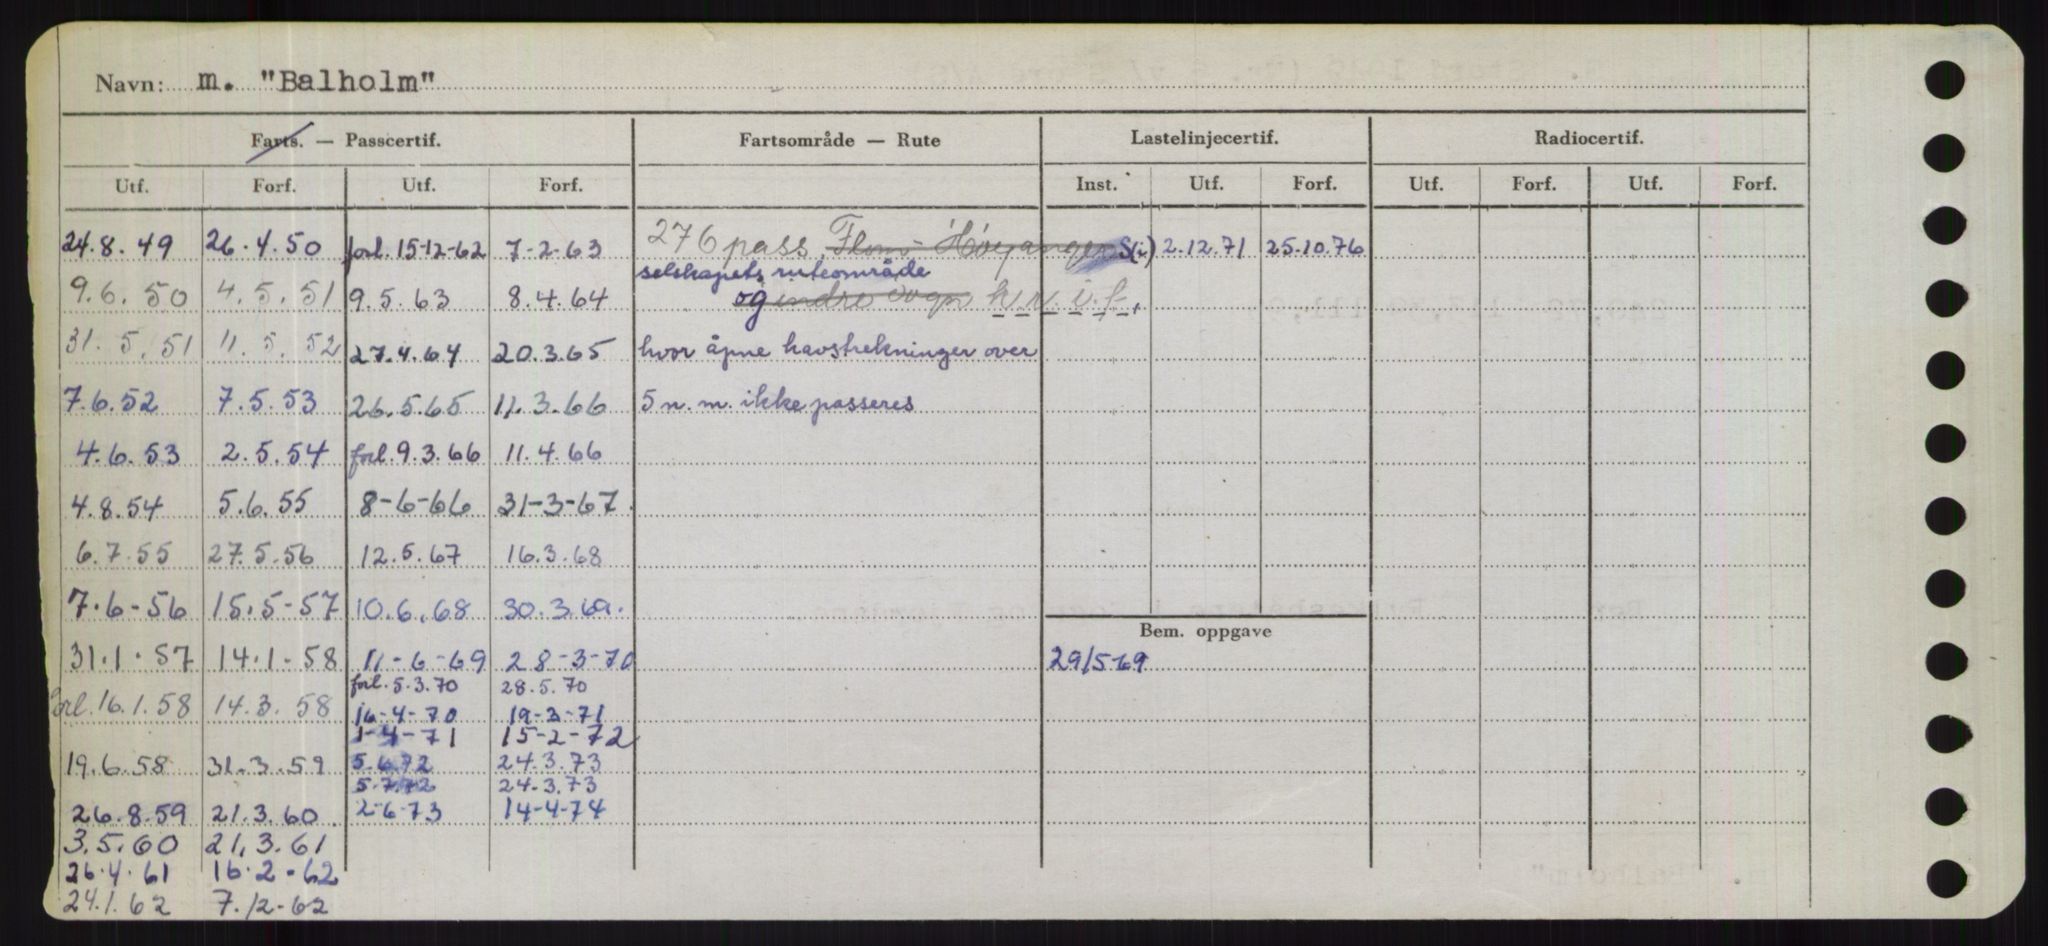 Navn: m. "Balholm"
Farts. — Passcertif. Fartsområde — Rute Lastelinjecertif. Radiocertif.
Utf. Forf. Utf. Forf. Inst. Utf. Forf. Utf. Forf. Utf. Forf.
24.8.49 26.4.50 forl. 15-12-62 7-2-63 276 pass. Flom-Høyanger S(i) 2.12.71 25.10.76
selskapets ruteområde
9.6.50 4.5.51 9.5.63 8.4.64 og indre Sogn h.v.i.f.,
31.5.51 11.5.52 27.4.64 20.3.65 hvor åpne havstrekninger over
7.6.52 7.5.53 26.5.65 11.3.66 5 n.m. ikke passeres
4.6.53 2.5.54 forl. 9.3.66 11.4.66
4.8.54 5.6.55 8-6-66 31-3-67.
6.7.55 27.5.56 12.5.67 16.3.68
7.6-56 15.5-57 10.6.68 30.3.69.
Bem. oppgave
31.1.57 14.1-58 11-6-69 28-3-70 29/5-69
forl. 5.3.70 28.5.70
forl. 16.1.58 14.3.58 16-4-70 19-3-71
1-4-71 15-2-72
19.6.58 31.3.59 5.6.72 24.3.73
5.7.72 24.3.73
26.8.59 21.3.60. 2-6-73 14-4-74
3.5.60 21.3.61
26.4.61 16.2.62
24.1.62 7.12-62